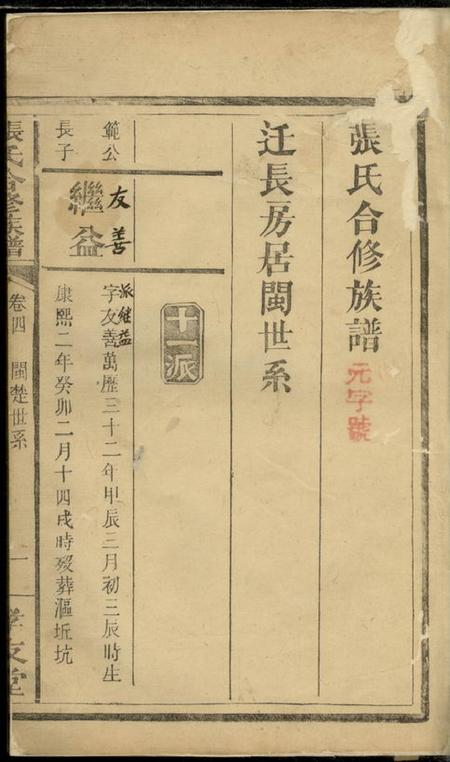 張氏合修族譜 元字號
迋長房居閩世系
十一派
範公
長子
友善
繼益
派继益
字友善萬歷三十二年甲辰三月初三辰時生
康熙二年癸卯二月十四戌時歿葬漚坵坑
張氏合修族譜 卷四 閩楚世系 一 孝友堂